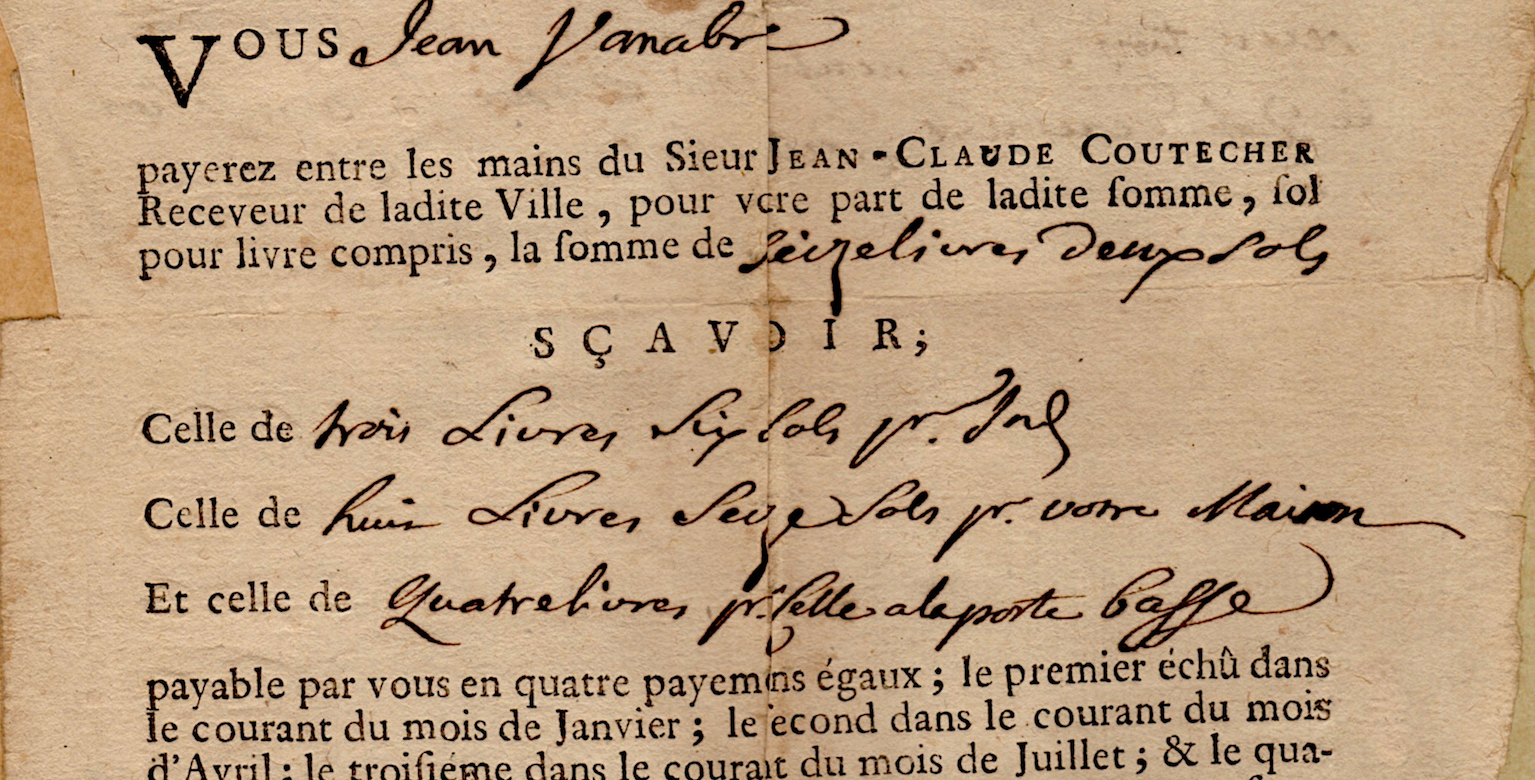 VOUS Jean Vanabre
payerez entre les mains du Sieur JEAN-CLAUDE COUTECHER
Receveur de ladite Ville, pour vere part de ladite ſomme, ſol
pour livre compris, la ſomme de Seizelivres deux sols
SÇAVOIR;
Celle de trois Livres Six Sols pr. Ind
Celle de huit Livres Seize Sols pr. votre Maison
Et celle de Quatrelivres pr. Celle alaporte basse
payable par vous en quatre payemens égaux; le premier échû dans
le courant du mois de Janvier; le ſecond dans le courant du mois
d'Avril; le troiſiéme dans le courant du mois de Juillet; & le qua-